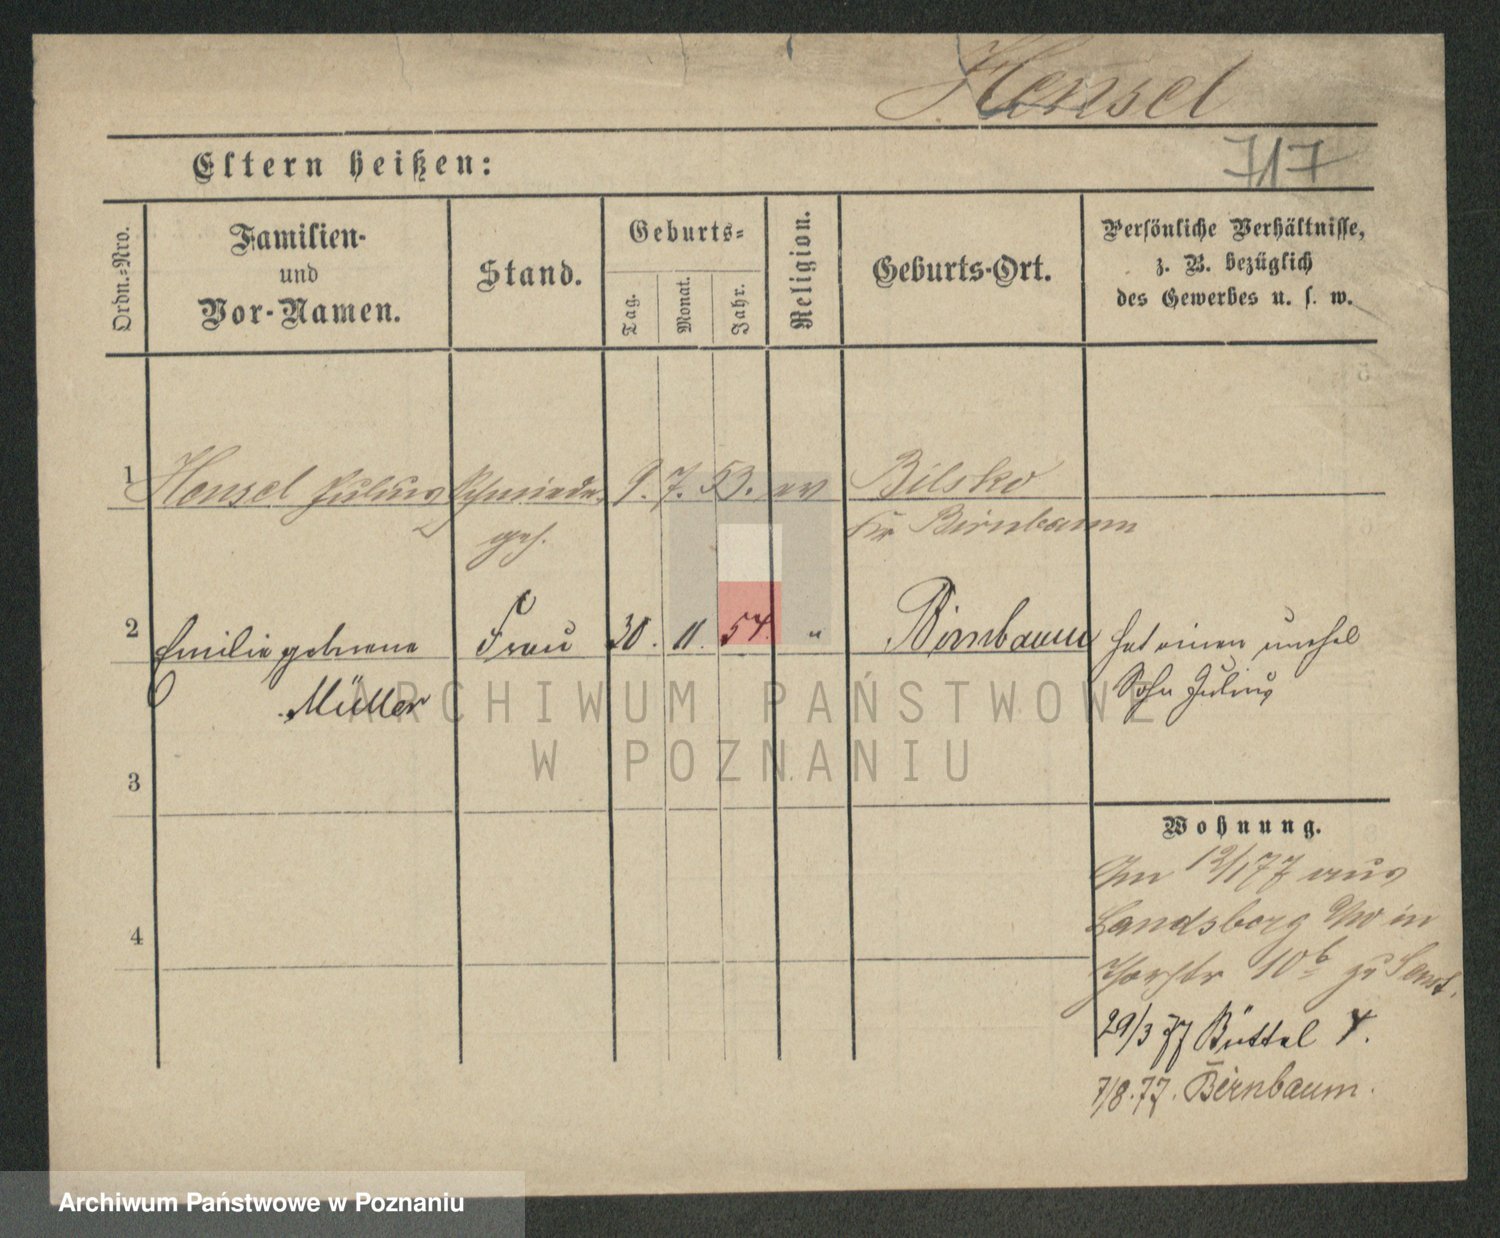 Hensel
717
Eltern heißen:
Ordn.-Nro.
Familien-
und
Vor-Namen.
Stand.
Geburts-
Tag.
Monat.
Jahr.
Religion.
Geburts-Ort.
Persönliche Verhältnisse,
z. B. bezüglich
des Gewerbes u. s. w.
1 Hensel Julius Schmiede 9. 7. 53. ev Bilsko
ges. Kr Birnbaum
2 Emilie geborene Frau 30. 11. 54. " Birnbaum hat einen unehel
Müller Sohn Julius
3
Wohnung.
Am 12/1 77 aus
Landsberg a/W in
10b zu
4
29/3 77 Büttel 4.
7/8.77. Birnbaum.
ARCHIWUM PAŃSTWOWE
W POZNANIU
Archiwum Państwowe w Poznaniu